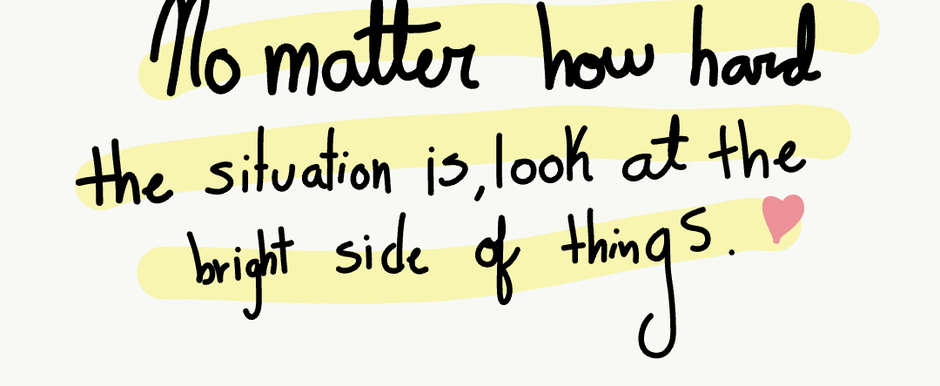 No matter how hard
the situation is, look at the
bright side of things.